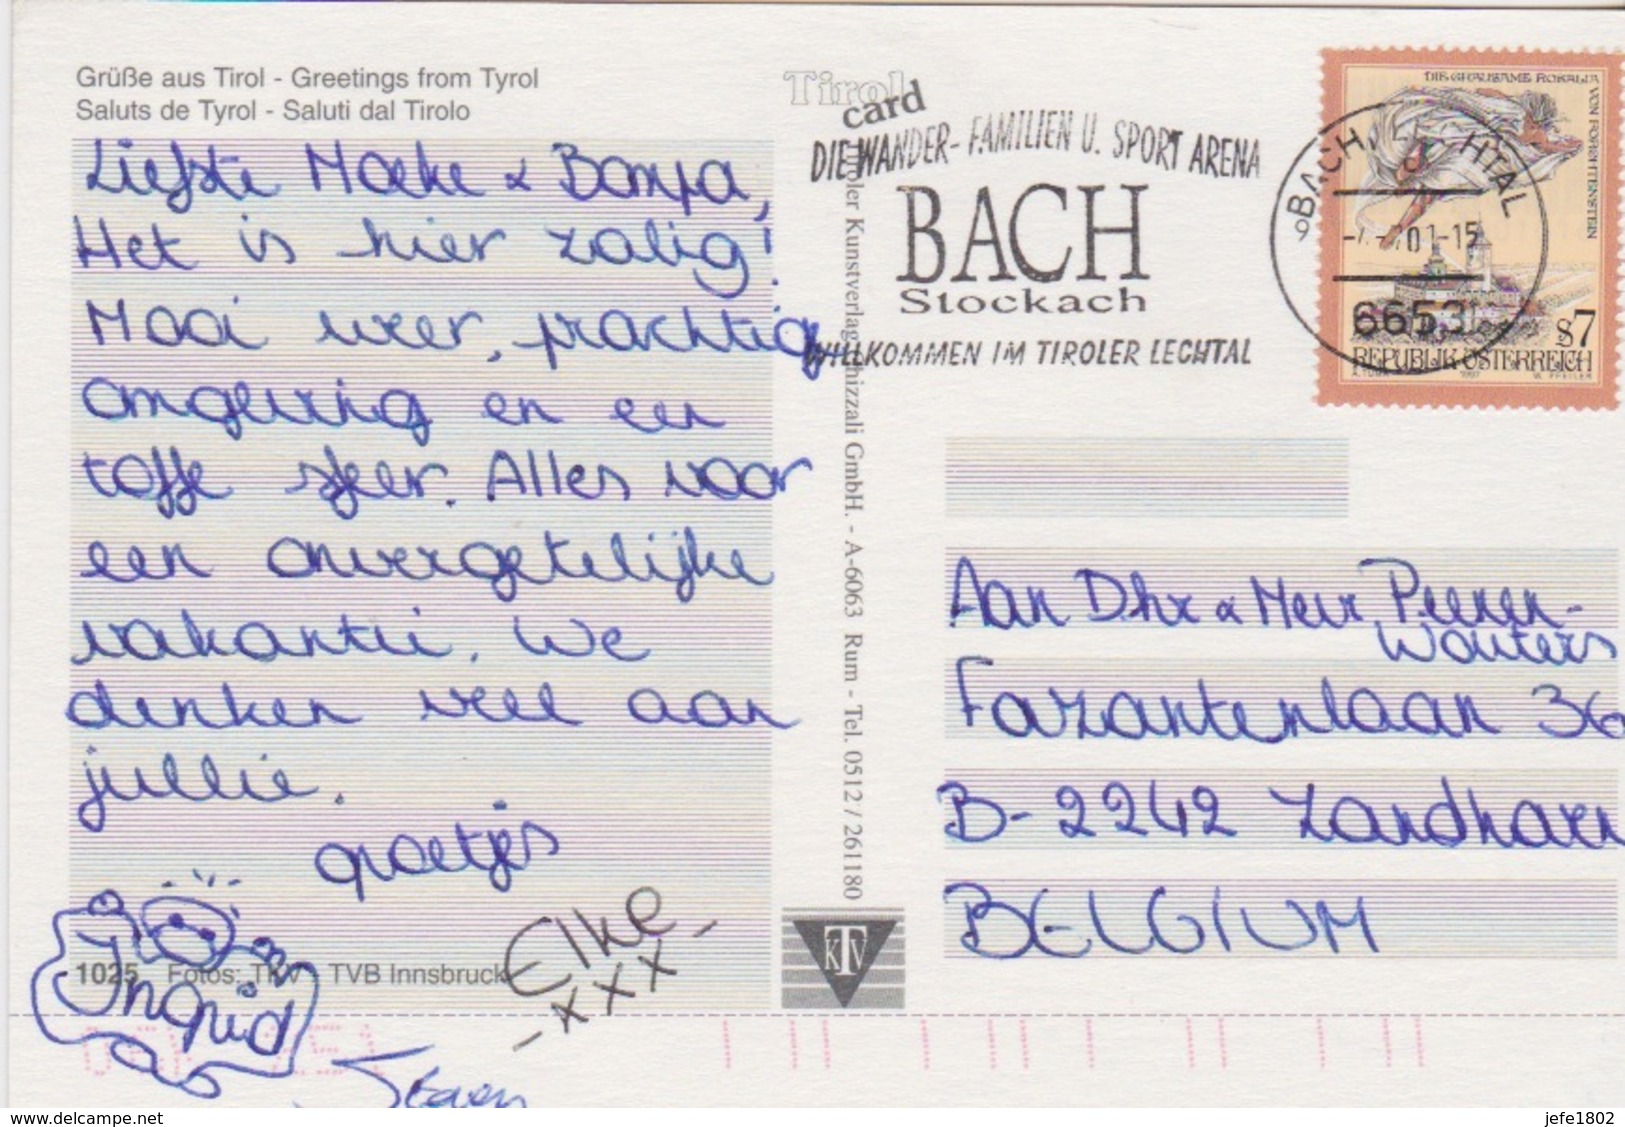 Grüße aus Tirol - Greetings from Tyrol
Saluts de Tyrol - Saluti dal Tirolo
Liefste Moeke & Bompa,
Het is hier zalig!
Mooi weer, prachtige
omgeving en een
toffe sfeer. Alles voor
een onvergetelijke
vakantie. We
denken veel aan
jullie.
groetjes
Ingrid
Elke
- x x x -
Steven
1025 Fotos: TKV - TVB Innsbruck
Tirol
card
Tiroler Kunstverlag Chizzali GmbH. - A-6063 Rum - Tel. 0512 / 261180
KTV
DIE WANDER- FAMILIEN U. SPORT ARENA
BACH
Stockach
WILLKOMMEN IM TIROLER LECHTAL
BACH, LECHTAL
01-15
6653
DIE GRAUSAME ROSALIA
VON FORCHTENSTEIN
S7
REPUBLIK ÖSTERREICH
1997 W. PFEILER
Aan Dhr & Mevr Peeren-
Wouters
Fazantenlaan 36
B-2242 Zandhoven
BELGIUM
www.delcampe.net
jefe1802